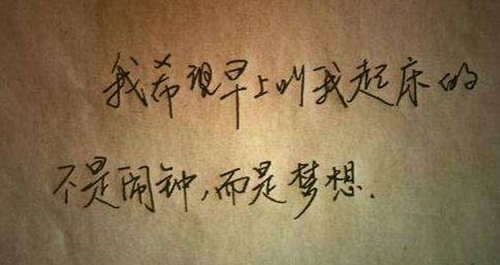 我希望早上叫我起床的
不是闹钟，而是梦想．